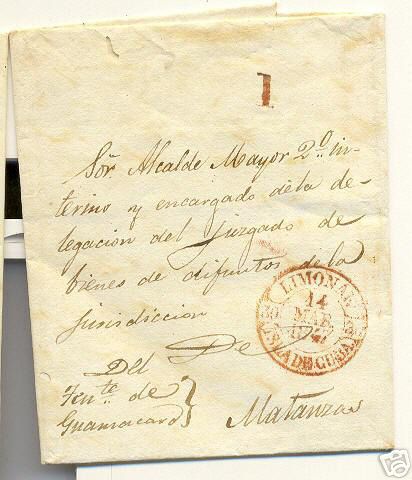 1
Sor. Alcalde Mayor 2º in-
terino y encargado de la de-
legacion del Juzgado de
bienes de difuntos de la
jurisdiccion
De
LIMONAR
14
MAR
ISLA DE CUBA
Del
Tente. de
Guamacaro
Matanzas
ebay